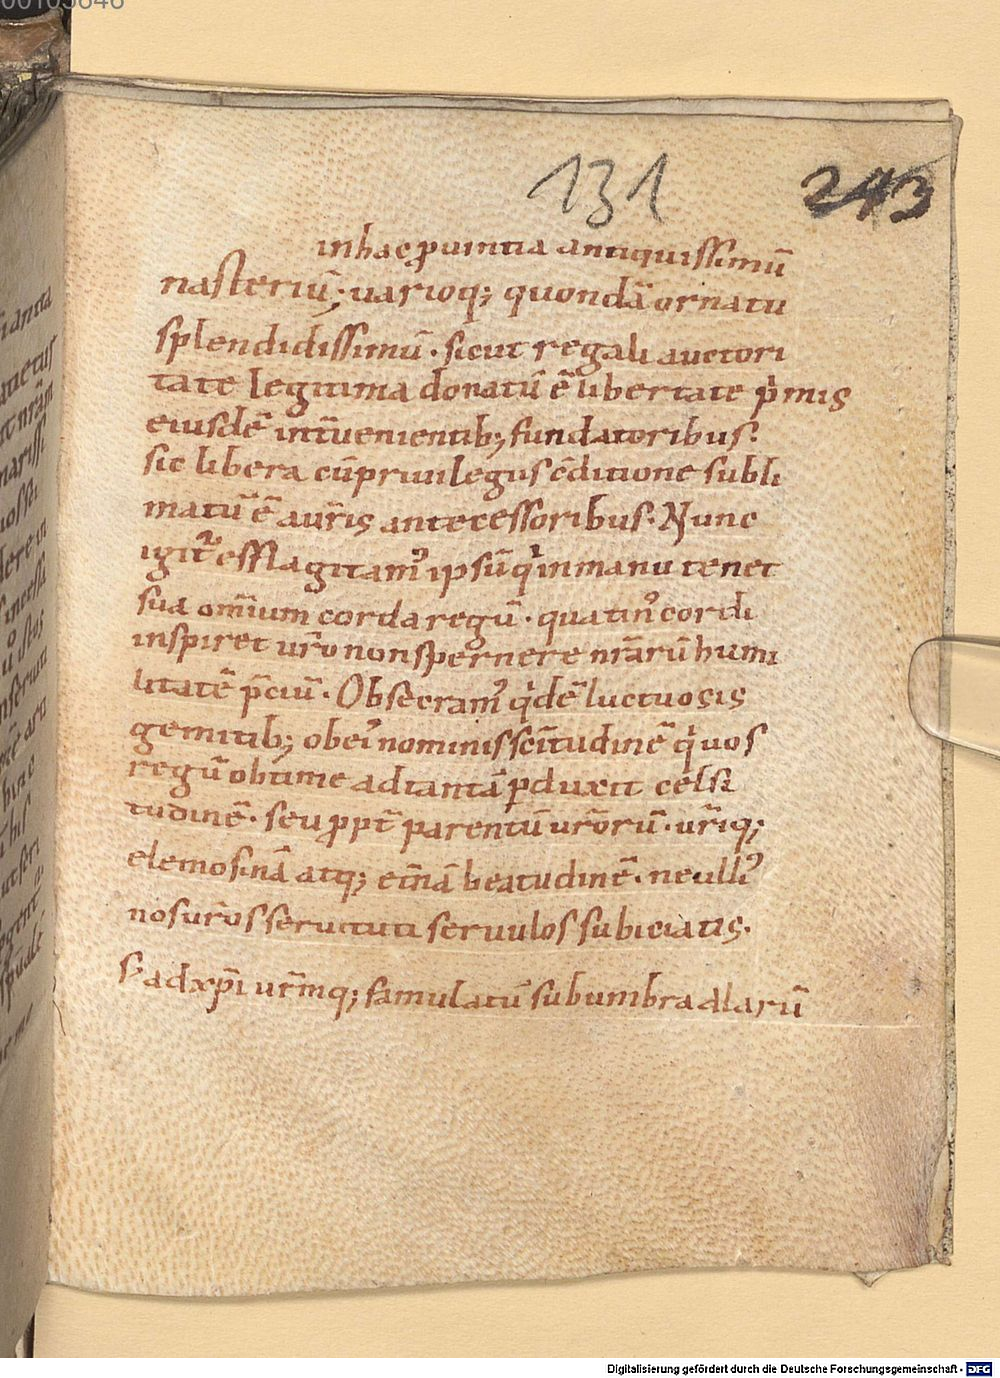 00105646
131
243
in hac ꝓuintia antiquissimū
nasteriū; uarioq; quondā ornatu
splendidissimū · sicut regali auctori
tate legitima donatū ē libertate p̍mis
eiusdē int̄uenientib; fundatoribus:
sic libera cū priuilegiis c̄ditione subli
matū ē a ur̄is antecessoribus · Nunc
igit᷑ efflagitam᾽ ipsū q̍ in manu tenet
sua om̄ium corda regū · quatin᾽ cordi
inspiret ur̄o non spernere nr̄arū humi
litatē p̄ciū · Obsecram᾽ q̍dē luctuosis
gemitib; ob ei᾽ nominis sc̄itudinē q̍ uos
regū obtime ad tantā ꝑduxit celsi
tudinē · seu ꝓpt̄ parentū ur̄orū · ur̄iq;
elemosinā atq; et̄nā beatudinē · ne ulli᾽
nos ur̄os seruituti seruulos subiciatis ·
S; ad xp̄i ur̄mq; famulatū sub umbra alarū
Digitalisierung gefördert durch die Deutsche Forschungsgemeinschaft - DFG